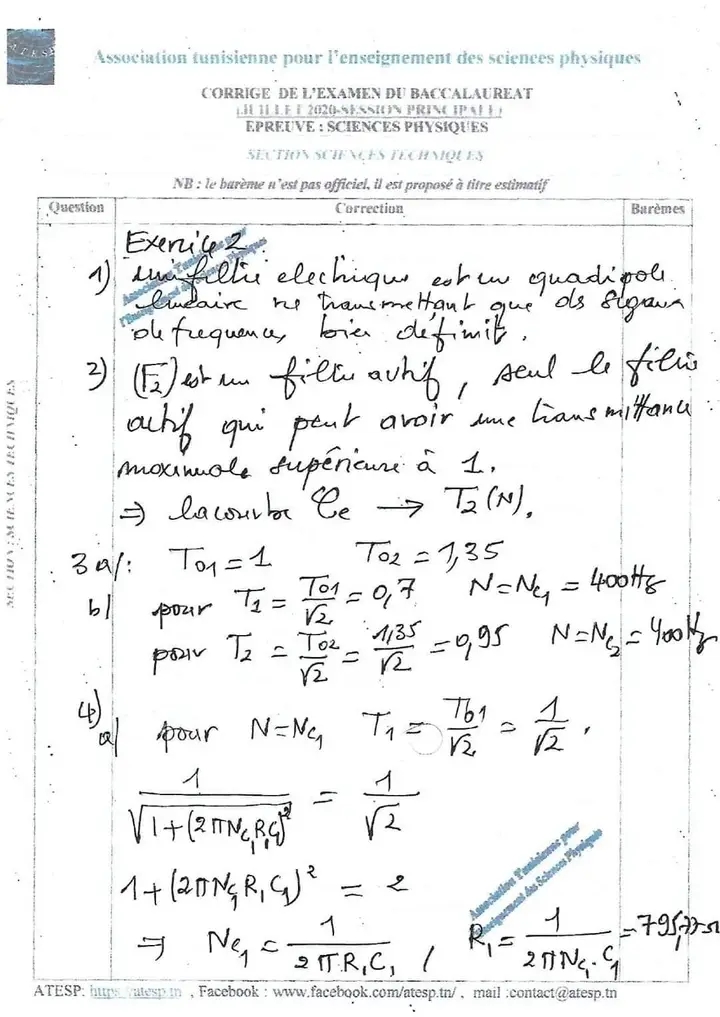 ATESP
Association tunisienne pour l'enseignement des sciences physiques
CORRIGE DE L'EXAMEN DU BACCALAUREAT
(JUILLET 2020-SESSION PRINCIPALE)
EPREUVE : SCIENCES PHYSIQUES
SECTION SCIENCES TECHNIQUES
NB : le barème n'est pas officiel, il est proposé à titre estimatif
Question Correction Barèmes
Exercice 2
1) un filtre electrique est un quadipole
lineaire ne transmettant que ds signaux
de frequences bien definit.
2) (F2) est un filtre actif, seul le filtre
actif qui peut avoir une transmittance
maximale supérieure à 1.
⇒ la courbe Ce → T2(N).
3 a/: T01 = 1 T02 = 1,35
b/ pour T1 = T01/√2 = 0,7 N = Nc1 = 400Hz
pour T2 = T02/√2 = 1,35/√2 = 0,95 N = Nc2 = 400Hz
4)
a/ pour N = Nc1 T1 = T01/√2 = 1/√2.
1/√(1+(2πNc1R1C1)²) = 1/√2
1+(2πNc1R1C1)² = 2
⇒ Nc1 = 1/(2πR1C1) / R1 = 1/(2πNc1.C1) = 795,77Ω
Association Tunisienne pour
l'Enseignement des Sciences Physiques
Association Tunisienne pour
l'Enseignement des Sciences Physiques
SECTION : SCIENCES TECHNIQUES
ATESP: https://atesp.tn , Facebook : www.facebook.com/atesp.tn/ , mail :contact@atesp.tn